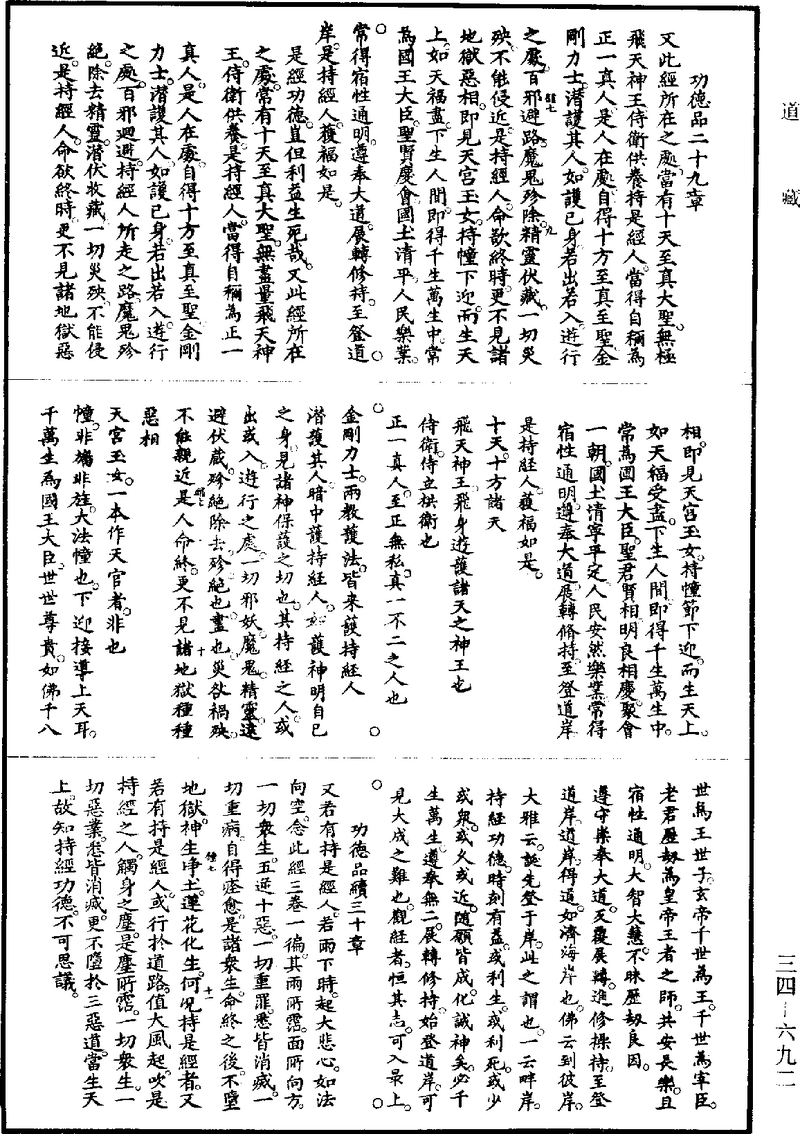 道藏
三四—六九二
功德品二十九章
又此經所在之處當有十天至真大聖無極
飛天神王侍衛供養持是經人當得自稱為
正一真人是人在處自得十方至真至聖金
剛力士潛護其人如護已身若出若入遊行
之處百邪避路魔鬼殄除精靈伏藏一切災
殃不能侵近是持經人命欲終時更不見諸
地獄惡相即見天宮玉女持幢下迎而生天
上如天福盡下生人間即得千生萬生中常
為國王大臣聖賢慶會國土清平人民樂業
常得宿性通明遵奉大道展轉修持至登道
岸是持經人獲福如是
是經功德豈但利益生死哉又此經所在
之處常有十天至真大聖無盡量飛天神
王侍衛供養是持經人當得自稱為正一
真人是人在處自得十方至真至聖金剛
力士潛護其人如護已身若出若入遊行
之處百邪迴避持經人所走之路魔鬼殄
絕除去精靈潛伏收藏一切災殃不能侵
近是持經人命欲終時更不見諸地獄惡
相即見天宮玉女持幢節下迎而生天上
如天福受盡下生人間即得千生萬生中
常為國王大臣聖君賢相明良相慶聚會
一朝國土清寧平定人民安然樂業常得
宿性通明遵奉大道展轉脩持至登道岸
是持經人獲福如是
十天十方諸天
飛天神王飛身遊護諸天之神王也
侍衛侍立拱衛也
正一真人至正無私真一不二之人也
金剛力士兩教護法皆来護持經人
潛護其人暗中護持經人如護神明自已
之身見諸神保護之切也其持經之人或
出或入遊行之處一切邪妖魔鬼精靈遠
避伏藏殄絕除去殄絕也盡也災欲禍殃
不能親近是人命終更不見諸地獄種種
惡相
天宮玉女一本作天官者非也
幢非旛非旌大法幢也下迎接導上天耳
千萬生為國王大臣世世尊貴如佛千八
世為王世子玄帝千世為王千世為宰臣
老君歷劫為皇帝王者之師共安長樂且
宿性通明大智大慧不昧歷劫良因
遵守崇奉大道反覆展轉進修操持至登
道岸道岸得道如濟海岸也佛云到彼岸
大雅云誕先登于岸此之謂也一云畔岸
持經功德時刻有益或利生或利死或少
或與或久或近隨願皆成化誠神矣必千
生萬生遵奉無二展轉修持始登道岸可
見大成之難也觀經者恒其志可入最上
功德品續三十章
又若有持是經人若雨下時起大悲心如法
向空念此經三卷一徧其雨所霑面所向方
一切衆生五逆十惡一切重罪悉皆消滅一
切重病自得痊愈是諸衆生命終之後不墮
地獄神生淨土蓮花化生何況持是經者又
若有持是經人或行於道路值大風起吹是
持經之人觸身之塵是塵所霑一切衆生一
切惡業悉皆消滅更不墮於三惡道當生天
上故知持經功德不可思議